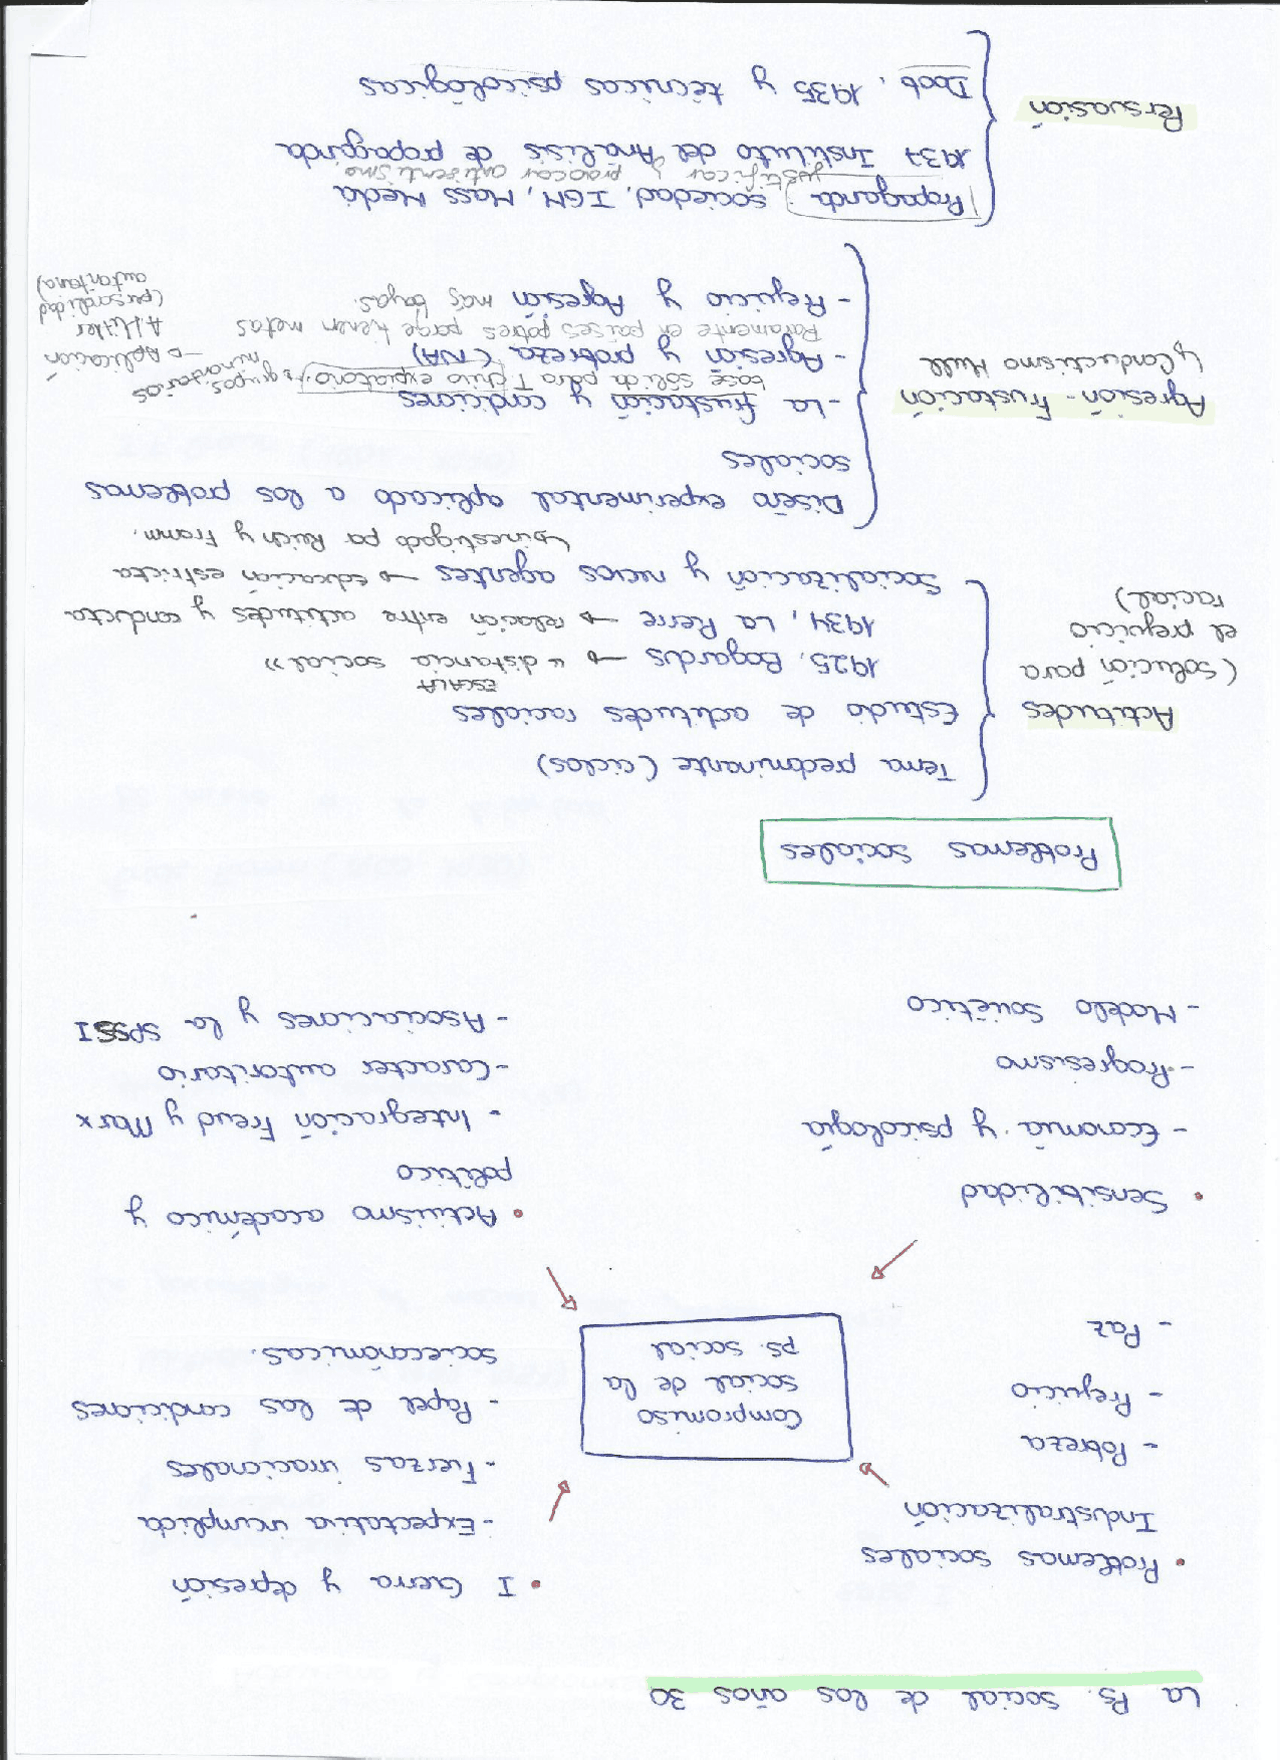 La Ps. Social de los años 30
• Problemas sociales
Industralización
- Pobreza
- Prejuicio
- Paz
• I Guerra y depresión
- Expectativa incumplida
- Fuerzas irracionales
- Papel de las condiciones
socieconómicas.
Compromiso
social de la
ps. social
• Sensibilidad
- Economía y psicología
- Progresismo
- Modelo Soviético
• Activismo académico y
político
- Integración Freud y Marx
- Caracter autoritario
- Asociaciones y la SPSSI
Problemas sociales
Actitudes
(solución para
el prejuicio
racial)
Tema predominante (ciclos)
Estudio de actitudes raciales
ESCALA
1925, Bogardus → "distancia social"
1934, La Pierre → relación entre actitudes y conducta
Socialización y nuevos agentes → educación estricta
↳ investigado por Reich y Fromm.
Agresión - Frustación
↳ Conductismo Hull
Diseño experimental aplicado a los problemas
sociales
- La frustación y condiciones
base sólida para T chivo expiatorio. grupos
minoritarios
- Agresión y probreza (NA)
→ Aplicación
A Hitler
(personalidad
autoritaria)
Raramente en países pobres porque tienen metas
más bajas.
- Prejuicio y Agresión
Persuasión
Propaganda, sociedad, IGM, Mass Media
justificar y antisemitismo
1937 Instituto del Análisis de propaganda
Doob, 1935 y técnicas psicológicas